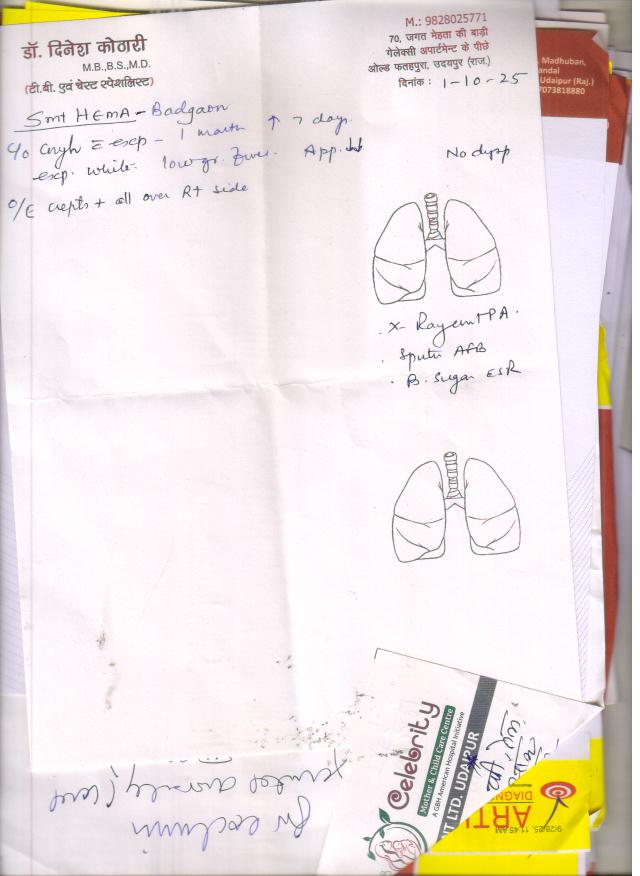 डॉ. दिनेश कोठारी
M.B.,B.S.,M.D.
(टी.बी. एवं चेस्ट स्पेशलिस्ट)
M.: 9828025771
70, जगत मेहता की बाड़ी
गेलेक्सी अपार्टमेन्ट के पीछे
ओल्ड फतहपुरा, उदयपुर (राज.)
दिनांक : 1-10-25
Smt HEMA - Badgaon
C/o Cough c exp - 1 month ↑ 7 days.
exp. white. low gr. fever. App.
No dysp
O/E crepts + all over Rt side
. X-Ray PA.
. Sputum AFB
. B. Sugar ESR
Madhuban,
Udaipur (Raj.)
7073818880
Celebrity
Mother & Child Care Centre
A GBH American Hospital Initiative
T LTD. UDAIPUR
ART
DIAGN
9/28/25, 11:45 AM